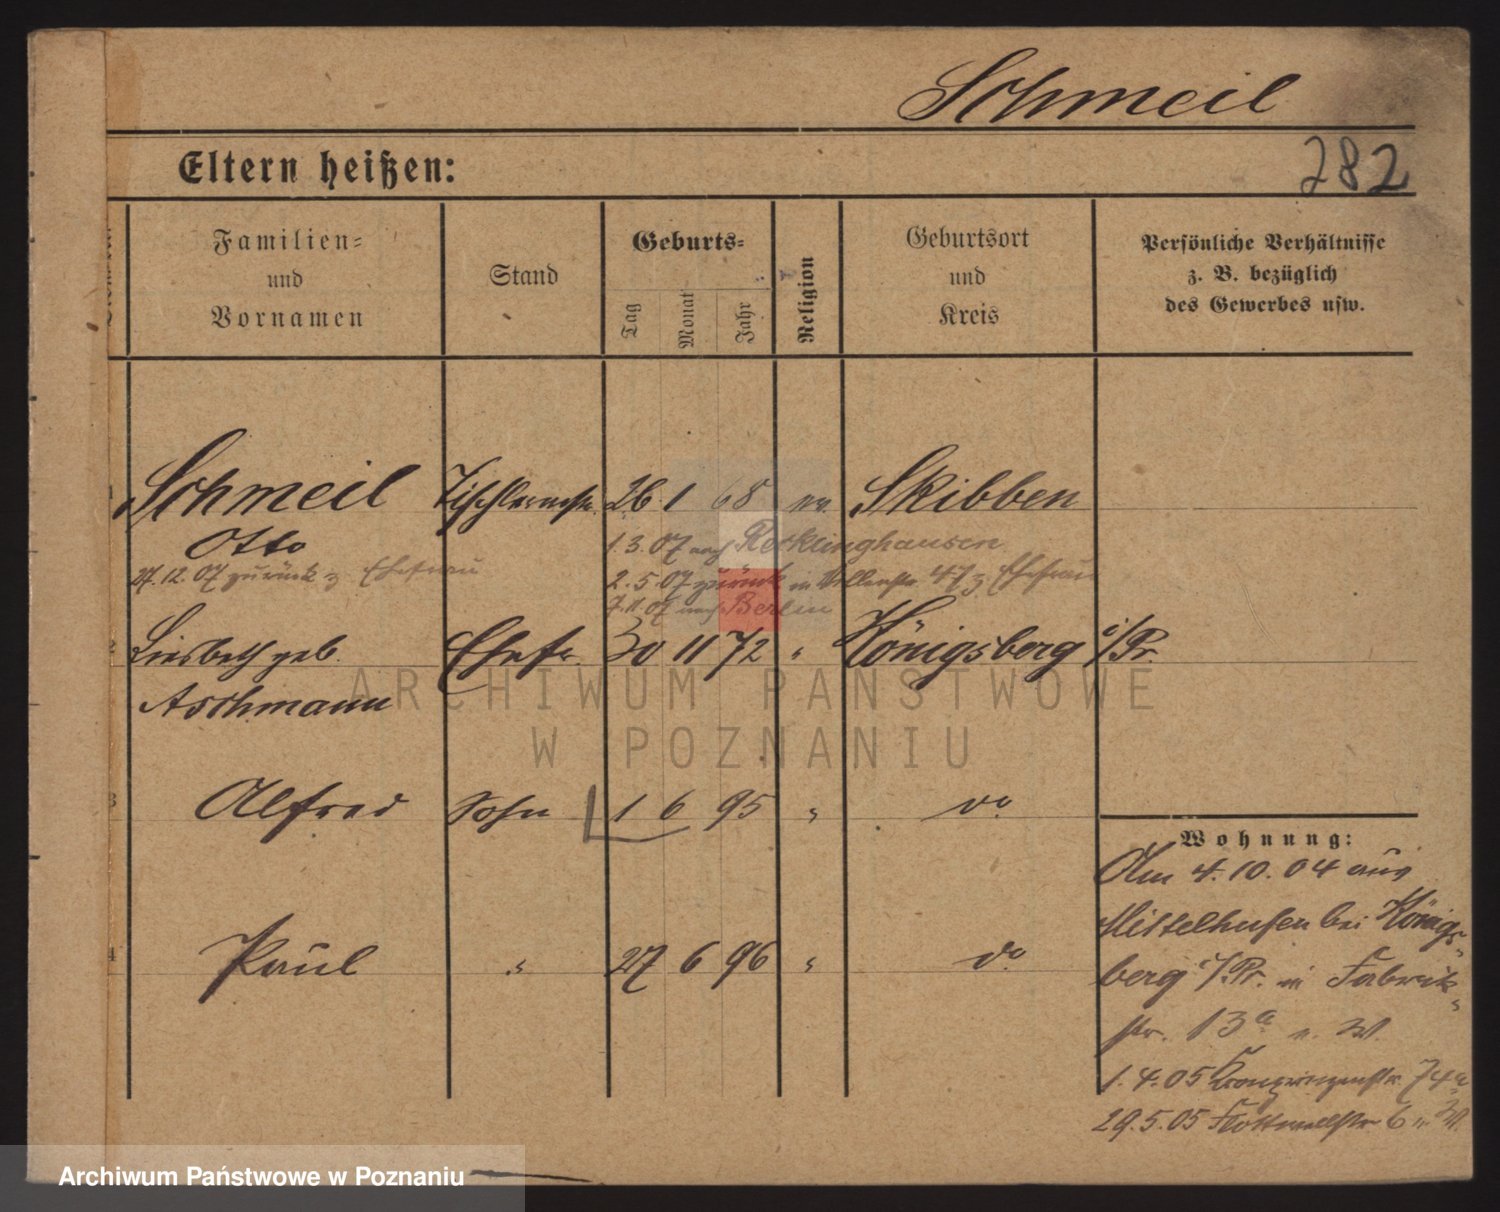 Schmeil
Eltern heißen:
282
Familien= und Vornamen
Stand
Geburts=
Tag
Monat
Jahr
Religion
Geburtsort und Kreis
Persönliche Verhältnisse
z. B. bezüglich
des Gewerbes usw.
1 Schmeil Tischlermstr. 26 1 68 ev. Skibben
Otto
1.3.07 nach Recklinghausen
27.12.07 zurück z. Ehefrau
2.5.07 zurück in 47 z. Ehefrau
7.11.07 nach Berlin
2 Liesbeth geb. Ehefr. 30 11 72 " Königsberg i/Pr.
Aschmann
3 Alfred Sohn 1 6 95 " do
Wohnung:
Am 4.10.04 aus
Mittelhufen bei Königs-
4 Paul " 27 6 96 " do
berg i/Pr. in Fabrik-
str. 13a n. W.
1.4.05 Kronprinzenstr. 74a
29.5.05 Flottwellstr 6 n. W.
ARCHIWUM PAŃSTWOWE
W POZNANIU
Archiwum Państwowe w Poznaniu